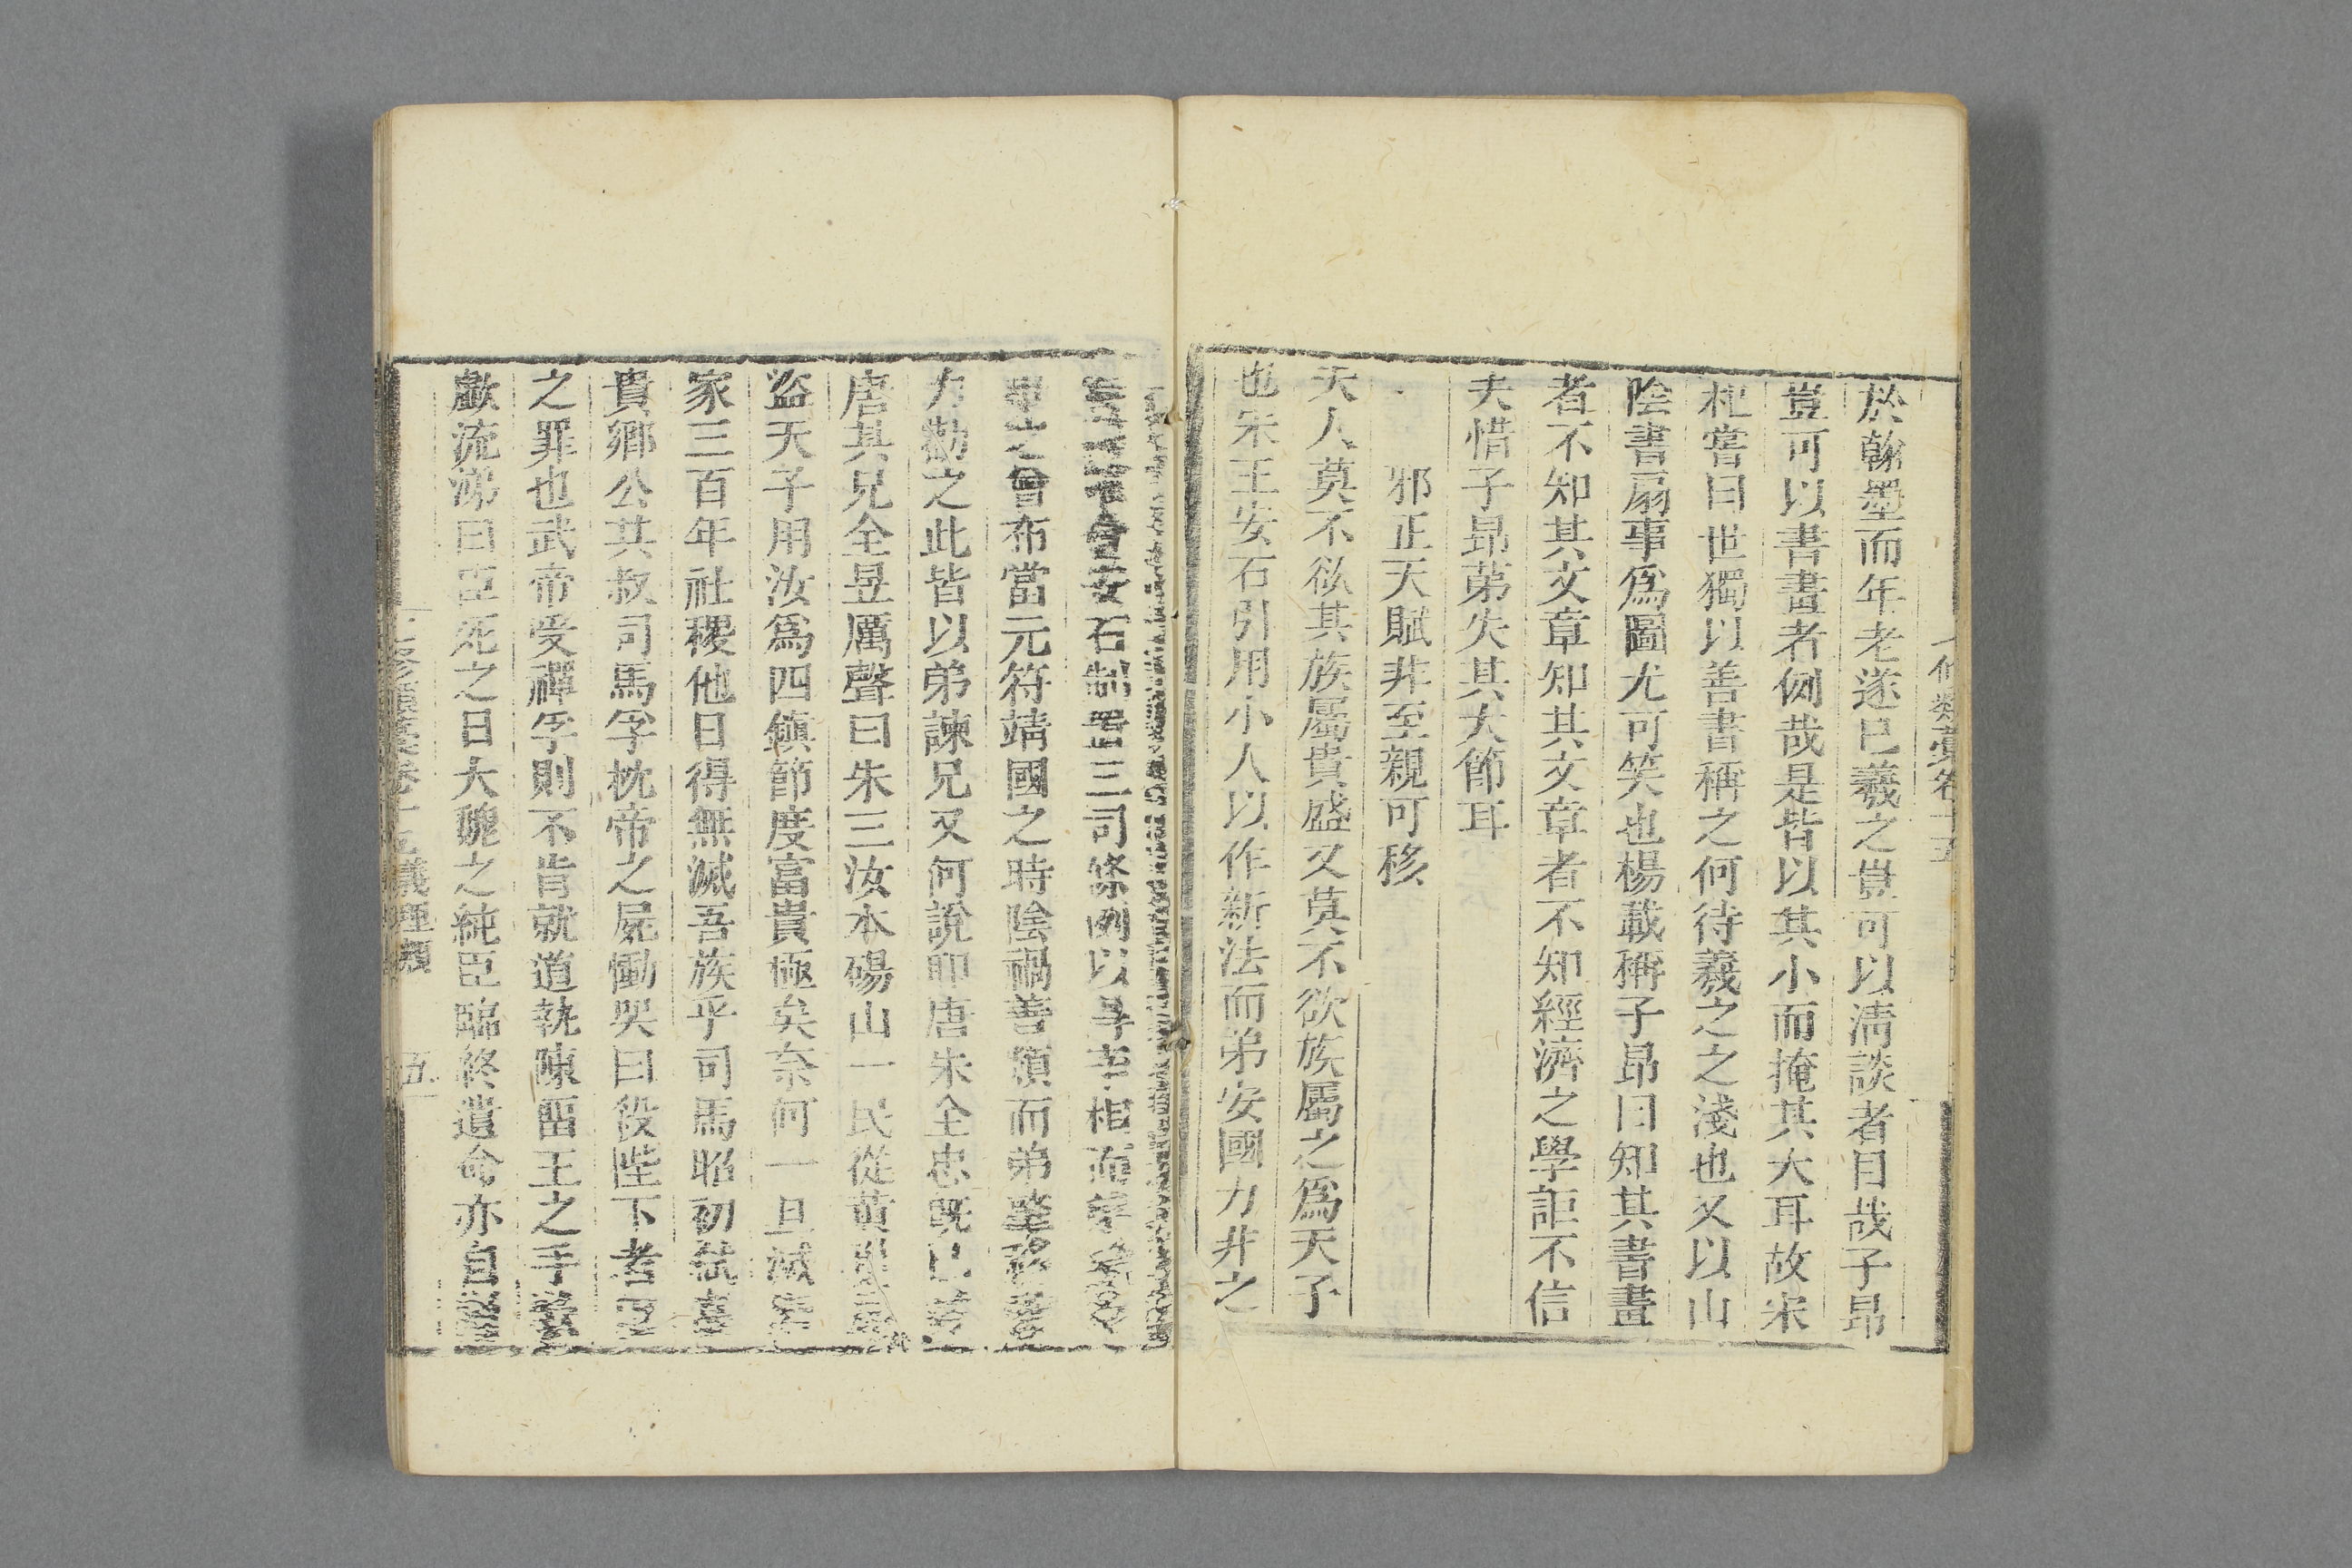 七修類藁卷十五
於翰墨而年老遂已羲之豈可以清談者目哉子昂
豈可以書畫者例哉是皆以其小而掩其大耳故宋
札嘗曰世獨以善書稱之何待羲之之淺也又以山
陰書扇事爲圖尤可笑也楊載稱子昂曰知其書畫
者不知其文章知其文章者不知經濟之學詎不信
夫惜子昂第失其大節耳
邪正天賦非至親可移
夫人莫不欲其族屬貴盛又莫不欲族屬之爲天子
也宋王安石引用小人以作新法而弟安國力非之
安石制置三司條例以 相而
之曾布當元符靖國之時陰禍善類而弟肇移書
力勸之此皆以弟諫兄又何說耶唐朱全忠既已
唐其兄全昱厲聲曰朱三汝本碭山一民從黃巢爲
盜天子用汝爲四鎮節度富貴極矣柰何一旦滅
家三百年社稷他日得無滅吾族乎司馬昭初弑高
貴鄉公其叔司馬孚枕帝之屍慟哭曰殺陛下者臣
之罪也武帝受禪孚則不肯就道執陳畱王之手
歔流涕曰臣死之日大魏之純臣臨終遺命亦自
七修類藁卷十五義理類 五